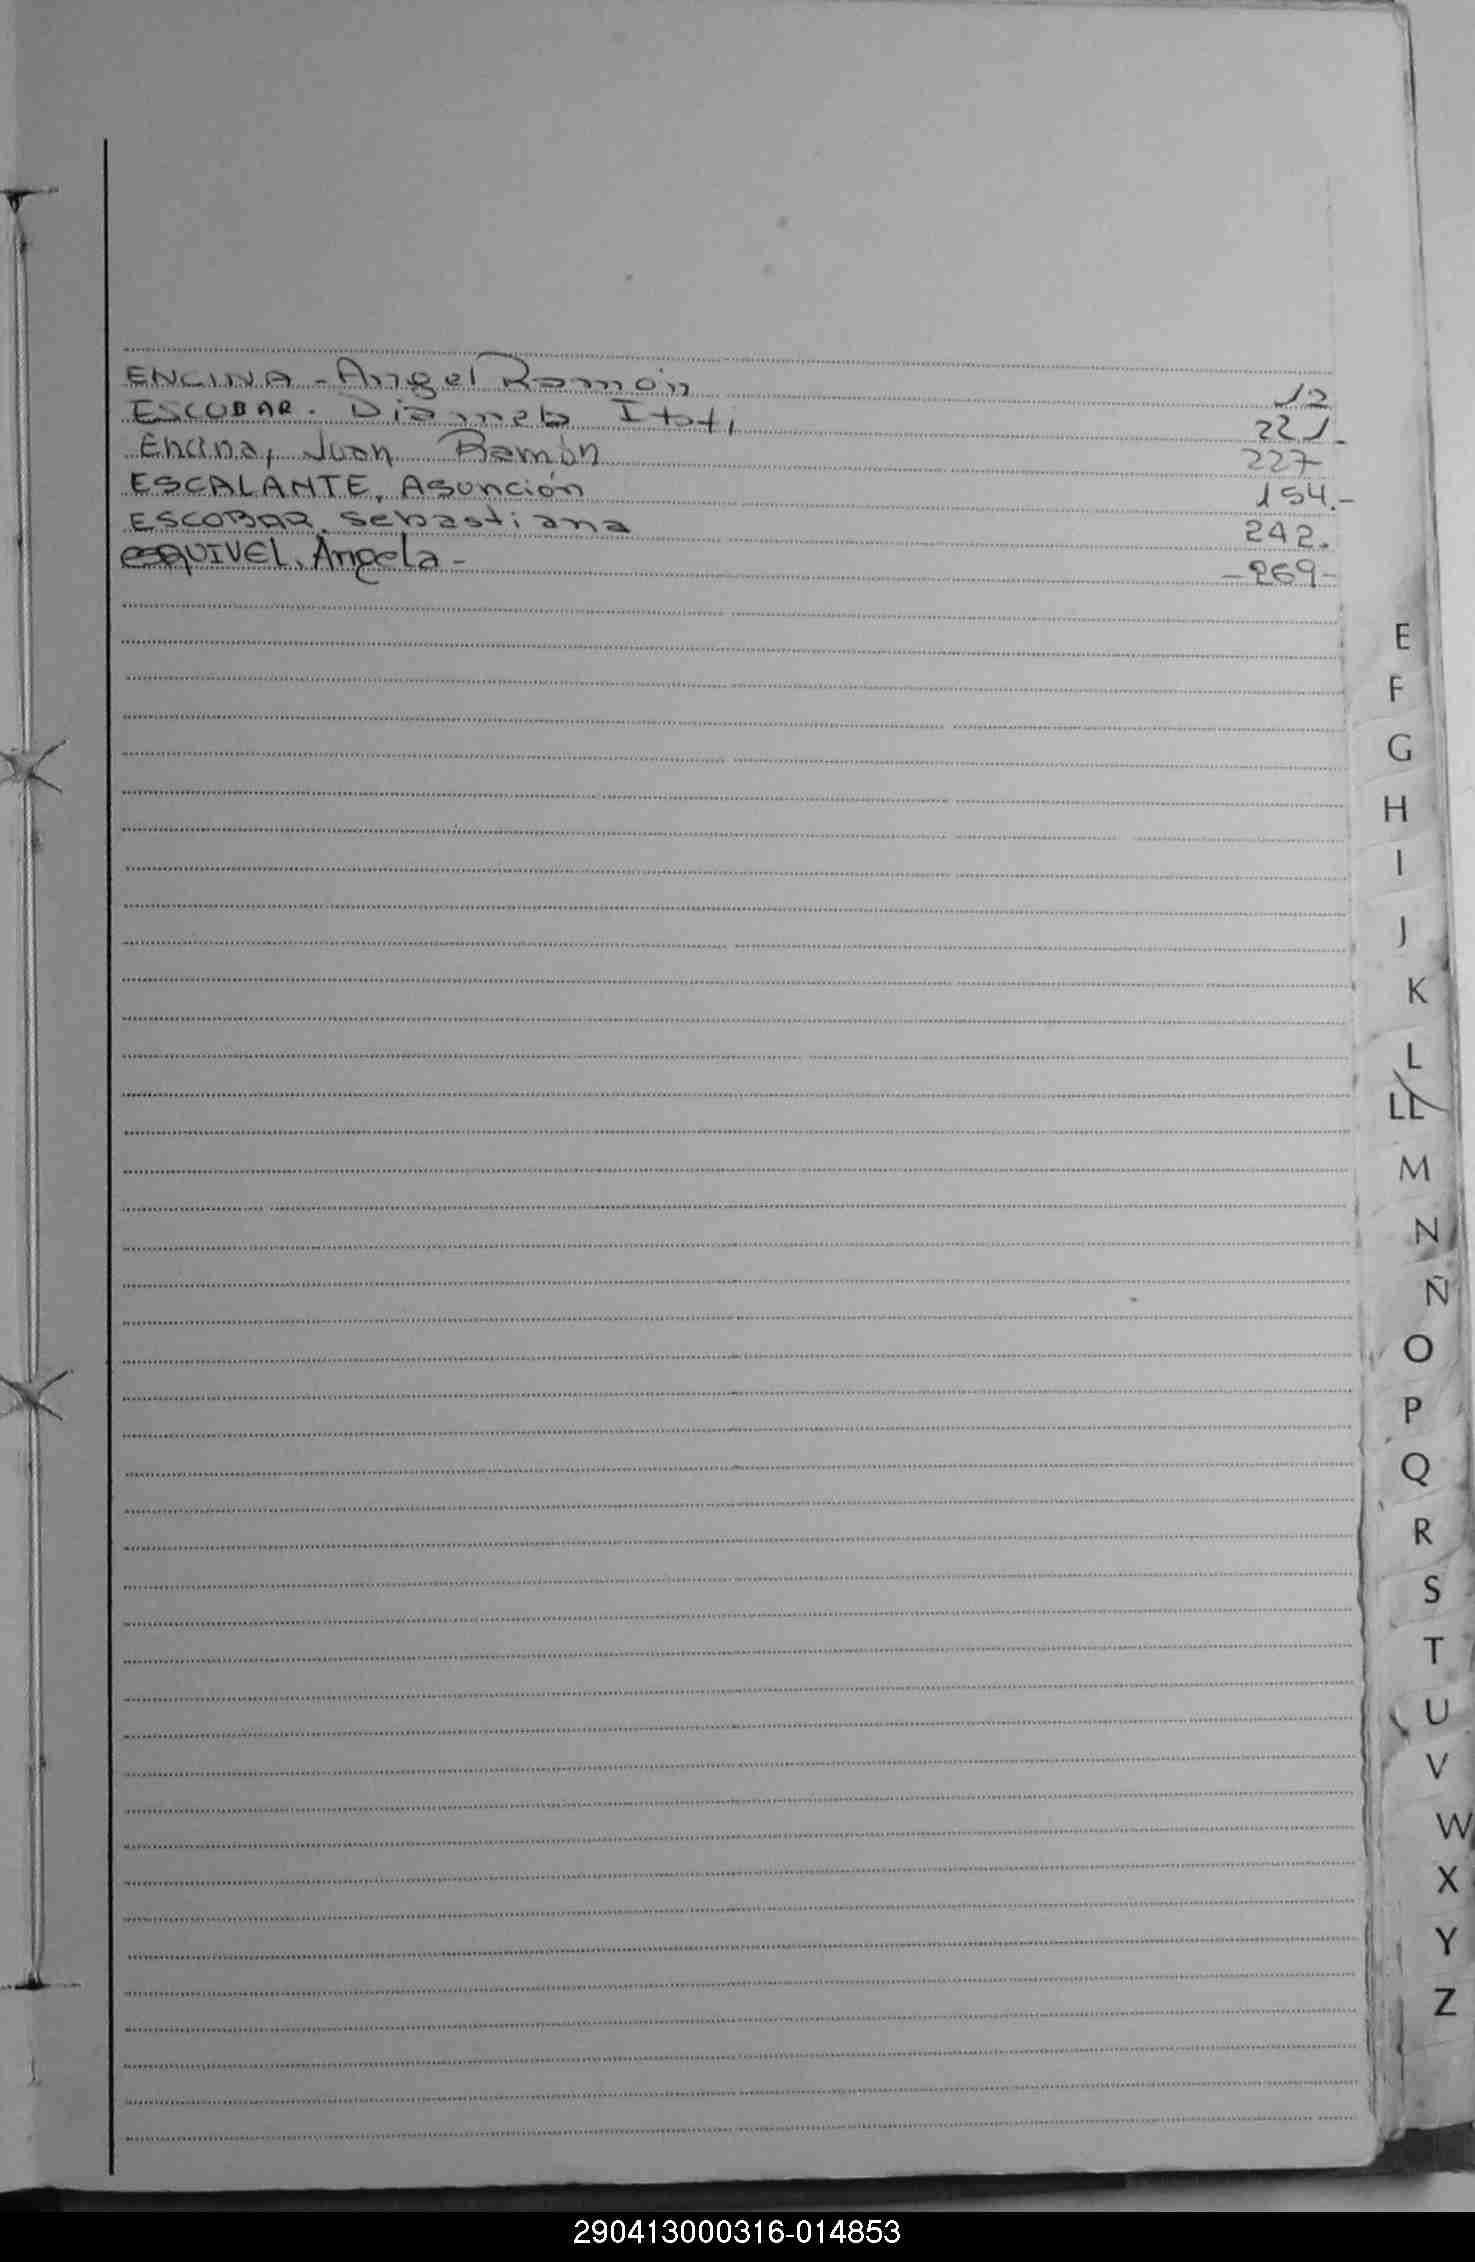 ENCINA - Angel Ramón 12
ESCOBAR. Diamela Itatí 221.-
Encina, Juan Ramón 227
ESCALANTE, Asunción 154.-
ESCOBAR. Sebastiana 242.
ESQUIVEL. Ángela - - 269 -
E
F
G
H
I
J
K
L
LL
M
N
Ñ
O
P
Q
R
S
T
U
V
W
X
Y
Z
290413000316-014853